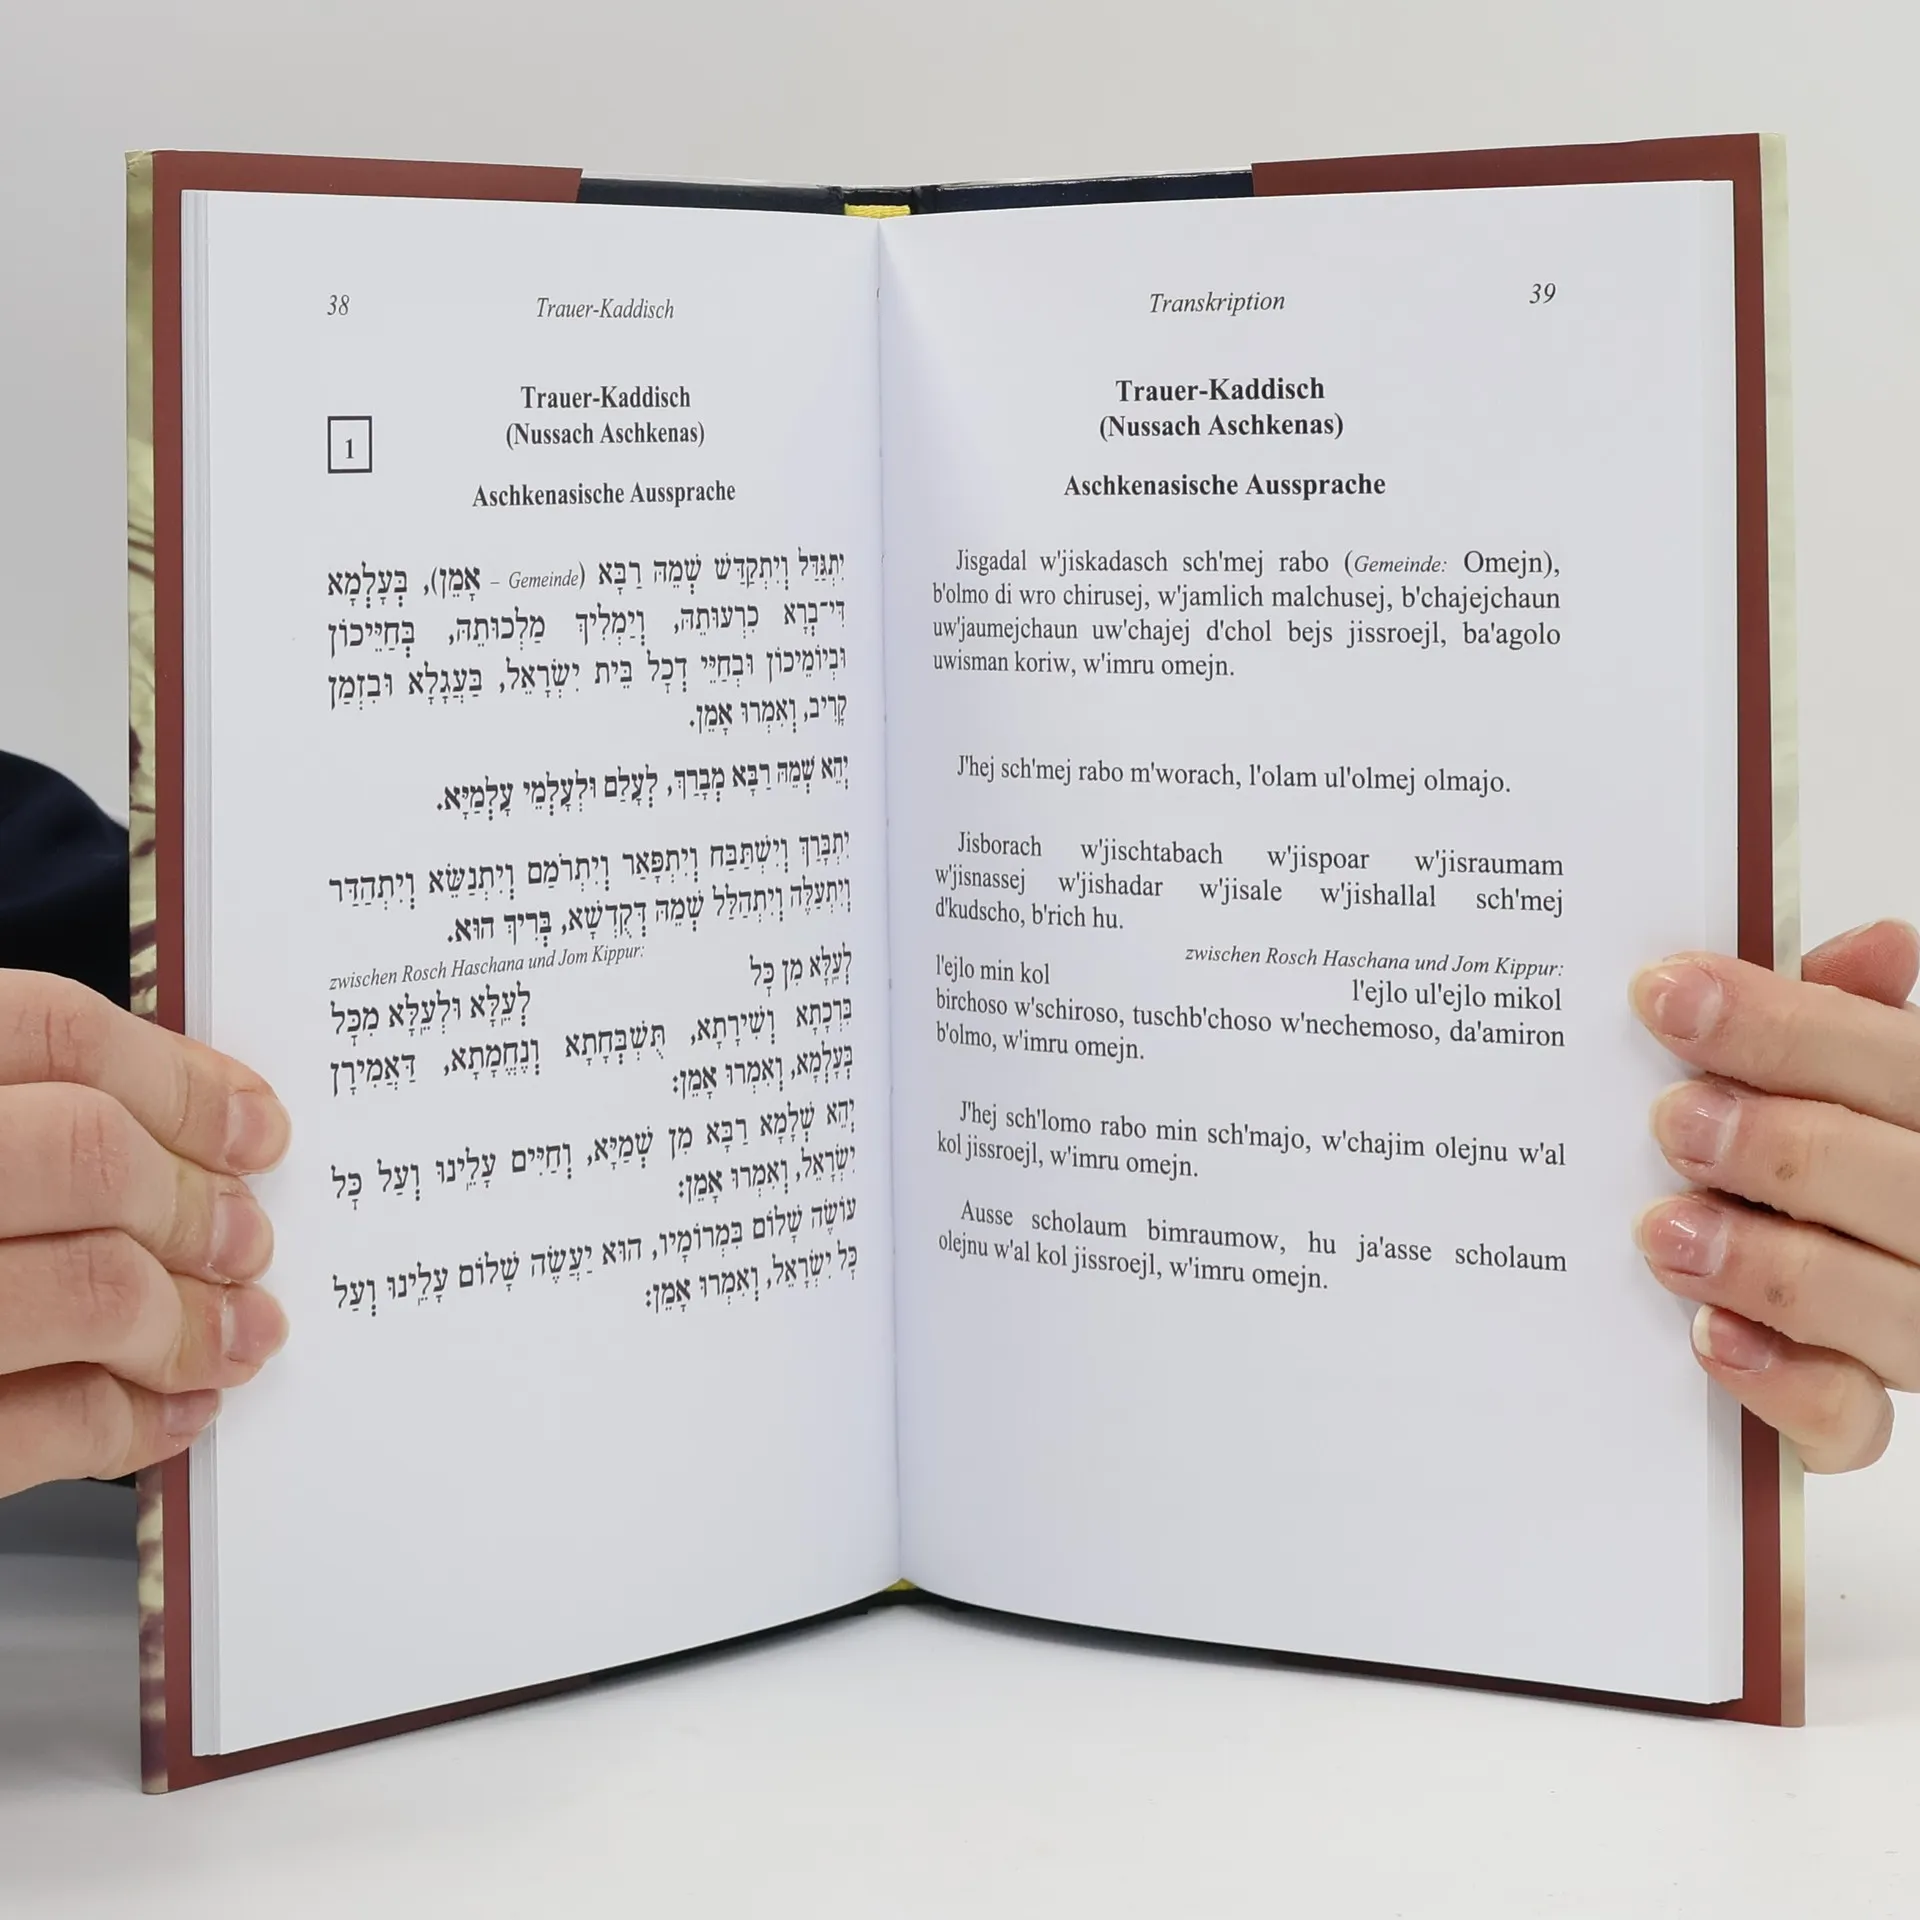 38
Trauer-Kaddisch
1
Trauer-Kaddisch
(Nussach Aschkenas)
Aschkenasische Aussprache
יִתְגַּדַּל וְיִתְקַדַּשׁ שְׁמֵהּ רַבָּא (אָמֵן – Gemeinde), בְּעָלְמָא
דִּי־בְרָא כִרְעוּתֵהּ, וְיַמְלִיךְ מַלְכוּתֵהּ, בְּחַיֵּיכוֹן
וּבְיוֹמֵיכוֹן וּבְחַיֵּי דְכָל בֵּית יִשְׂרָאֵל, בַּעֲגָלָא וּבִזְמַן
קָרִיב, וְאִמְרוּ אָמֵן.
יְהֵא שְׁמֵהּ רַבָּא מְבָרַךְ, לְעָלַם וּלְעָלְמֵי עָלְמַיָּא.
יִתְבָּרַךְ וְיִשְׁתַּבַּח וְיִתְפָּאַר וְיִתְרֹמַם וְיִתְנַשֵּׂא וְיִתְהַדַּר
וְיִתְעַלֶּה וְיִתְהַלַּל שְׁמֵהּ דְּקֻדְשָׁא, בְּרִיךְ הוּא.
zwischen Rosch Haschana und Jom Kippur:
לְעֵלָּא מִן כָּל לְעֵלָּא וּלְעֵלָּא מִכָּל
בִּרְכָתָא וְשִׁירָתָא, תֻּשְׁבְּחָתָא וְנֶחֱמָתָא, דַּאֲמִירָן
בְּעָלְמָא, וְאִמְרוּ אָמֵן:
יְהֵא שְׁלָמָא רַבָּא מִן שְׁמַיָּא, וְחַיִּים עָלֵינוּ וְעַל כָּל
יִשְׂרָאֵל, וְאִמְרוּ אָמֵן:
עוֹשֶׂה שָׁלוֹם בִּמְרוֹמָיו, הוּא יַעֲשֶׂה שָׁלוֹם עָלֵינוּ וְעַל
כָּל יִשְׂרָאֵל, וְאִמְרוּ אָמֵן:
Transkription
39
Trauer-Kaddisch
(Nussach Aschkenas)
Aschkenasische Aussprache
Jisgadal w'jiskadasch sch'mej rabo (Gemeinde: Omejn),
b'olmo di wro chirusej, w'jamlich malchusej, b'chajejchaun
uw'jaumejchaun uw'chajej d'chol bejs jissroejl, ba'agolo
uwisman koriw, w'imru omejn.
J'hej sch'mej rabo m'worach, l'olam ul'olmej olmajo.
Jisborach w'jischtabach w'jispoar w'jisraumam
w'jisnassej w'jishadar w'jisale w'jishallal sch'mej
d'kudscho, b'rich hu.
zwischen Rosch Haschana und Jom Kippur:
l'ejlo min kol l'ejlo ul'ejlo mikol
birchoso w'schiroso, tuschb'choso w'nechemoso, da'amiron
b'olmo, w'imru omejn.
J'hej sch'lomo rabo min sch'majo, w'chajim olejnu w'al
kol jissroejl, w'imru omejn.
Ausse scholaum bimraumow, hu ja'asse scholaum
olejnu w'al kol jissroejl, w'imru omejn.